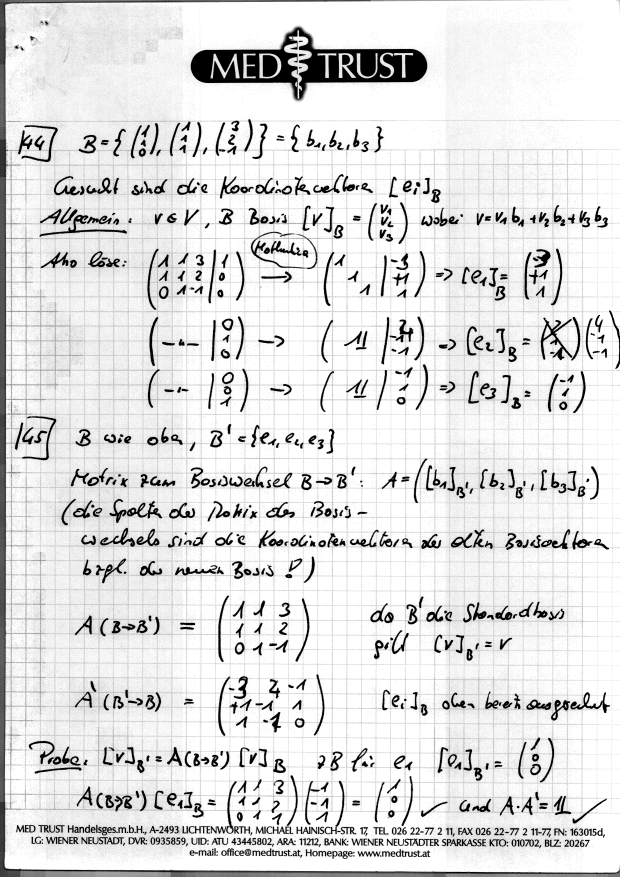 MED TRUST
144 B = { (1 1 0), (1 1 1), (3 2 -1) } = { b1, b2, b3 }
Gesucht sind die Koordinatenvektoren [ei]B
Allgemein: v ∈ V, B Basis [v]B = (v1 v2 v3) wobei v = v1 b1 + v2 b2 + v3 b3
Mathematica
Also löse: (1 1 3 | 1, 1 1 2 | 0, 0 1 -1 | 0) → (1 1 1 | -3 +1 1) => [e1]B = (-3 +1 1)
( -"- | 0 1 0) → ( 1l | 4 -1 -1) => [e2]B = (4 -1 -1)
( -"- | 0 0 1) → ( 1l | -1 1 0) => [e3]B = (-1 1 0)
145 B wie oben, B' = {e1, e2, e3}
Matrix zum Basiswechsel B→B': A = ([b1]B', [b2]B', [b3]B')
(die Spalten der Matrix des Basis-
wechsels sind die Koordinatenvektoren der alten Basisvektoren
bzgl. der neuen Basis !)
A (B→B') = (1 1 3, 1 1 2, 0 1 -1) da B' die Standardbasis
gilt [v]B' = v
A' (B'→B) = (-3 4 -1, +1 -1 1, 1 -1 0) [ei]B oben bereits ausgerechnet
Probe: [v]B' = A(B→B') [v]B zB für e1 [e1]B' = (1 0 0)
A(B→B') [e1]B = (1 1 3, 1 1 2, 0 1 -1) (-3 -1 1) = (1 0 0) ✓ und A·A' = 1l ✓
MED TRUST Handelsges.m.b.H., A-2493 LICHTENWÖRTH, MICHAEL HAINISCH-STR. 17, TEL. 026 22-77 2 11, FAX 026 22-77 2 11-77, FN: 163015d,
LG: WIENER NEUSTADT, DVR: 0935859, UID: ATU 43445802, ARA: 11212, BANK: WIENER NEUSTÄDTER SPARKASSE KTO: 010702, BLZ: 20267
e-mail: office@medtrust.at, Homepage: www.medtrust.at